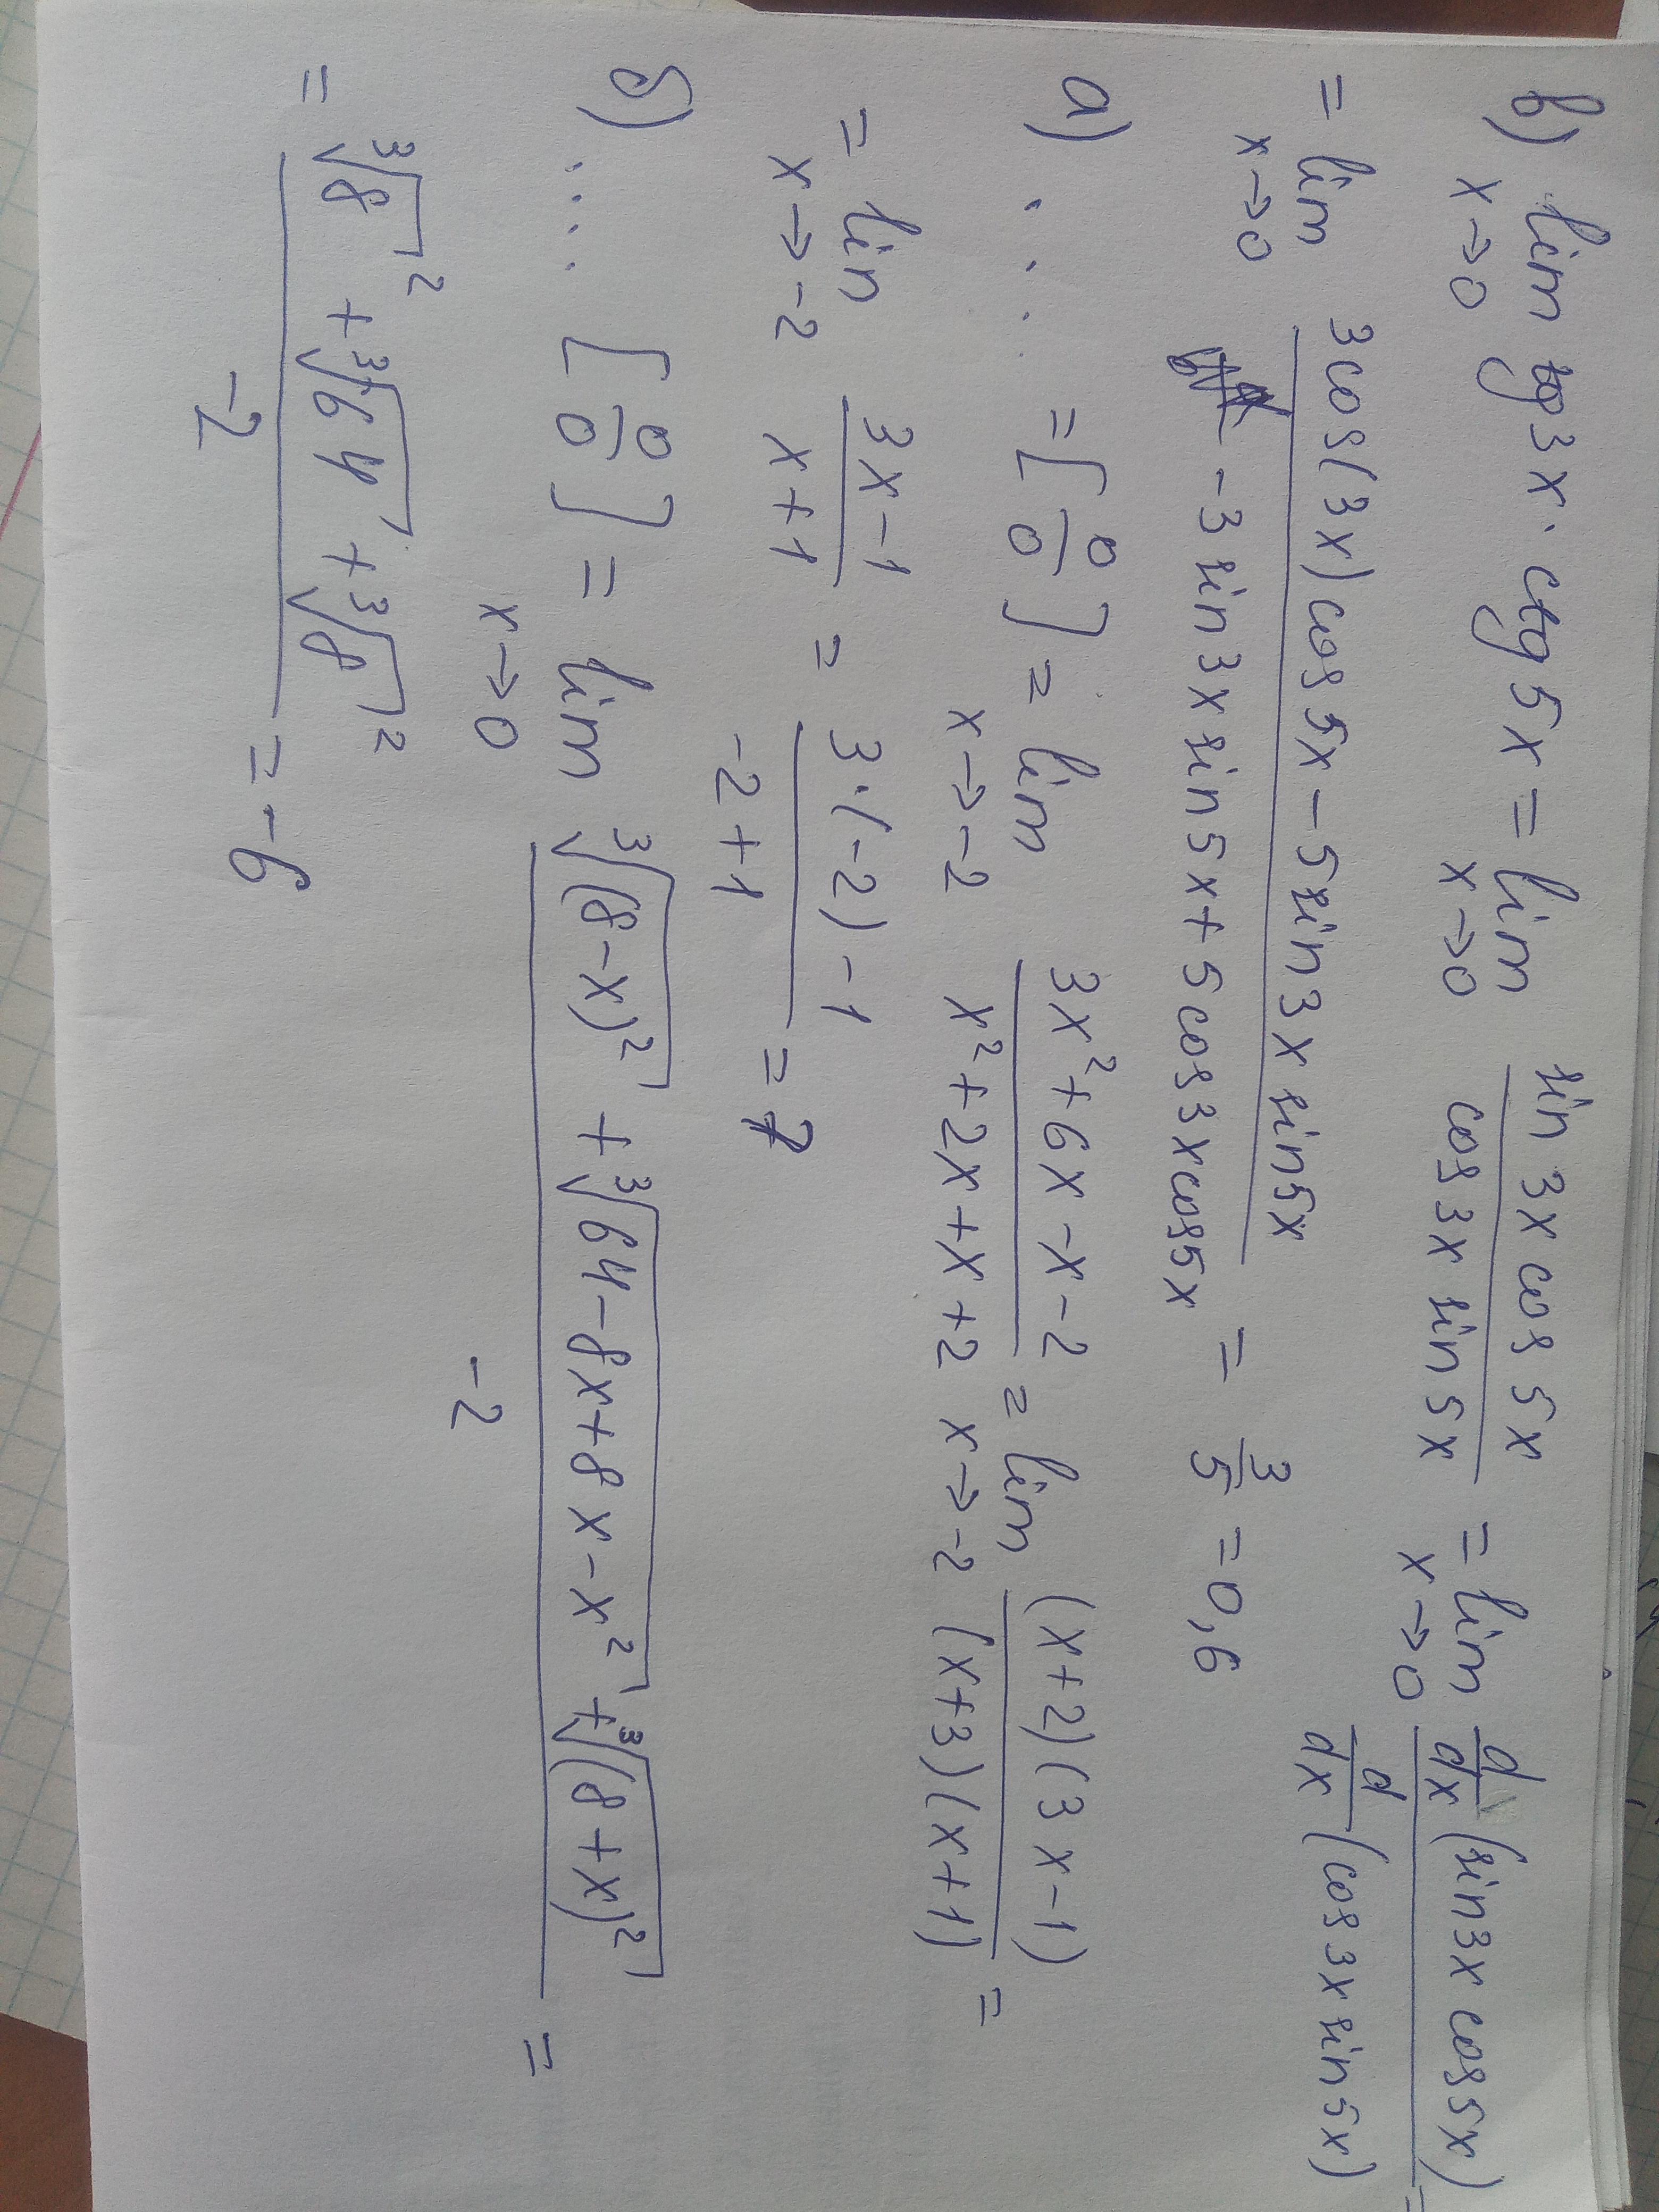 в) lim x→0 tg3x · ctg5x = lim x→0 sin 3x cos 5x / cos 3x sin 5x = lim x→0 d/dx (sin3x cos5x) / d/dx (cos3x sin5x) =
= lim x→0 3cos(3x)cos5x − 5sin3x sin5x / −3 sin3x sin5x + 5cos3x cos5x = 3/5 = 0,6
а) ... = [0/0] = lim x→−2 3x² + 6x − x − 2 / x² + 2x + x + 2 = lim x→−2 (x+2)(3x−1) / (x+3)(x+1) =
= lim x→−2 3x−1 / x+1 = 3·(−2)−1 / −2+1 = 7
б) ... [0/0] = lim x→0 ∛(8−x)² + ∛64−8x+8x−x² + ∛(8+x)² / −2 =
= ∛8² + ∛64 + ∛8² / −2 = −6